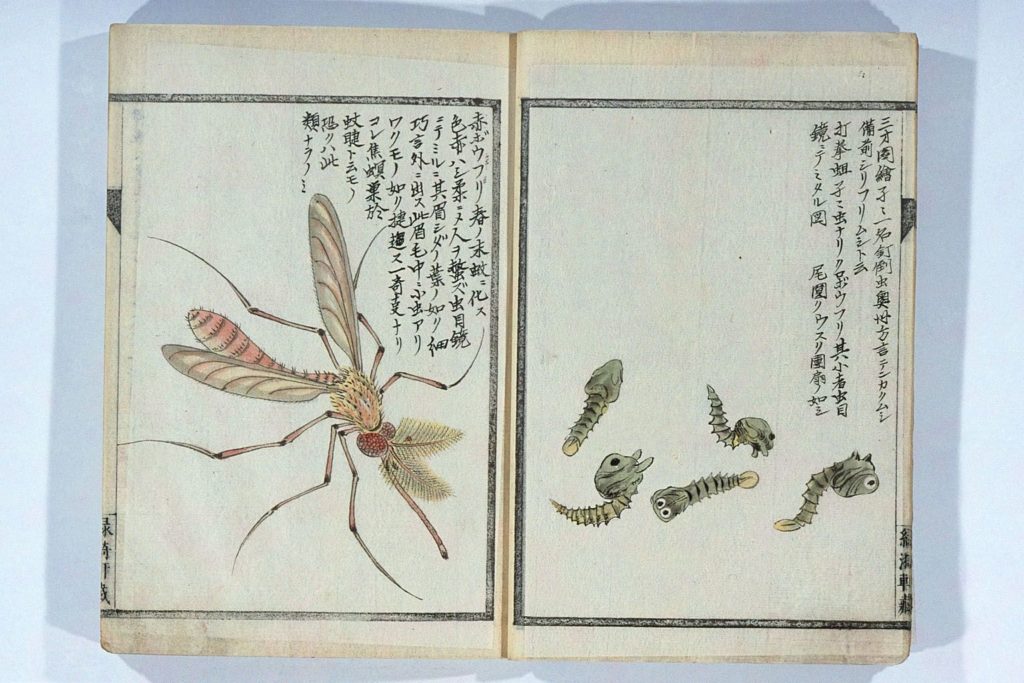 三才圖繪孑ミ一名釘倒虫奥州方言テンカクムシ
備前シリフリムシト云
打拳蛆孑ミ虫ナリクロボウフリ其小者虫目
鏡ニテミタル図 尾圓クウスク團扇ノ如シ
緑漪軒蔵
赤ボウフリ春ノ末蚊ニ化ス
色赤ハシ柔ニメ人ヲ螫ズ虫目鏡
ニテミルニ其眉シダノ葉ノ如ク細
巧言外ニ出ス此眉毛中ニ小虫アリ
ワクモノ如ク捷ス一奇支ナリ
コレ焦螟巣於
蚊睫ト云モノ
恐クハ此
類ナラン
緑漪軒蔵